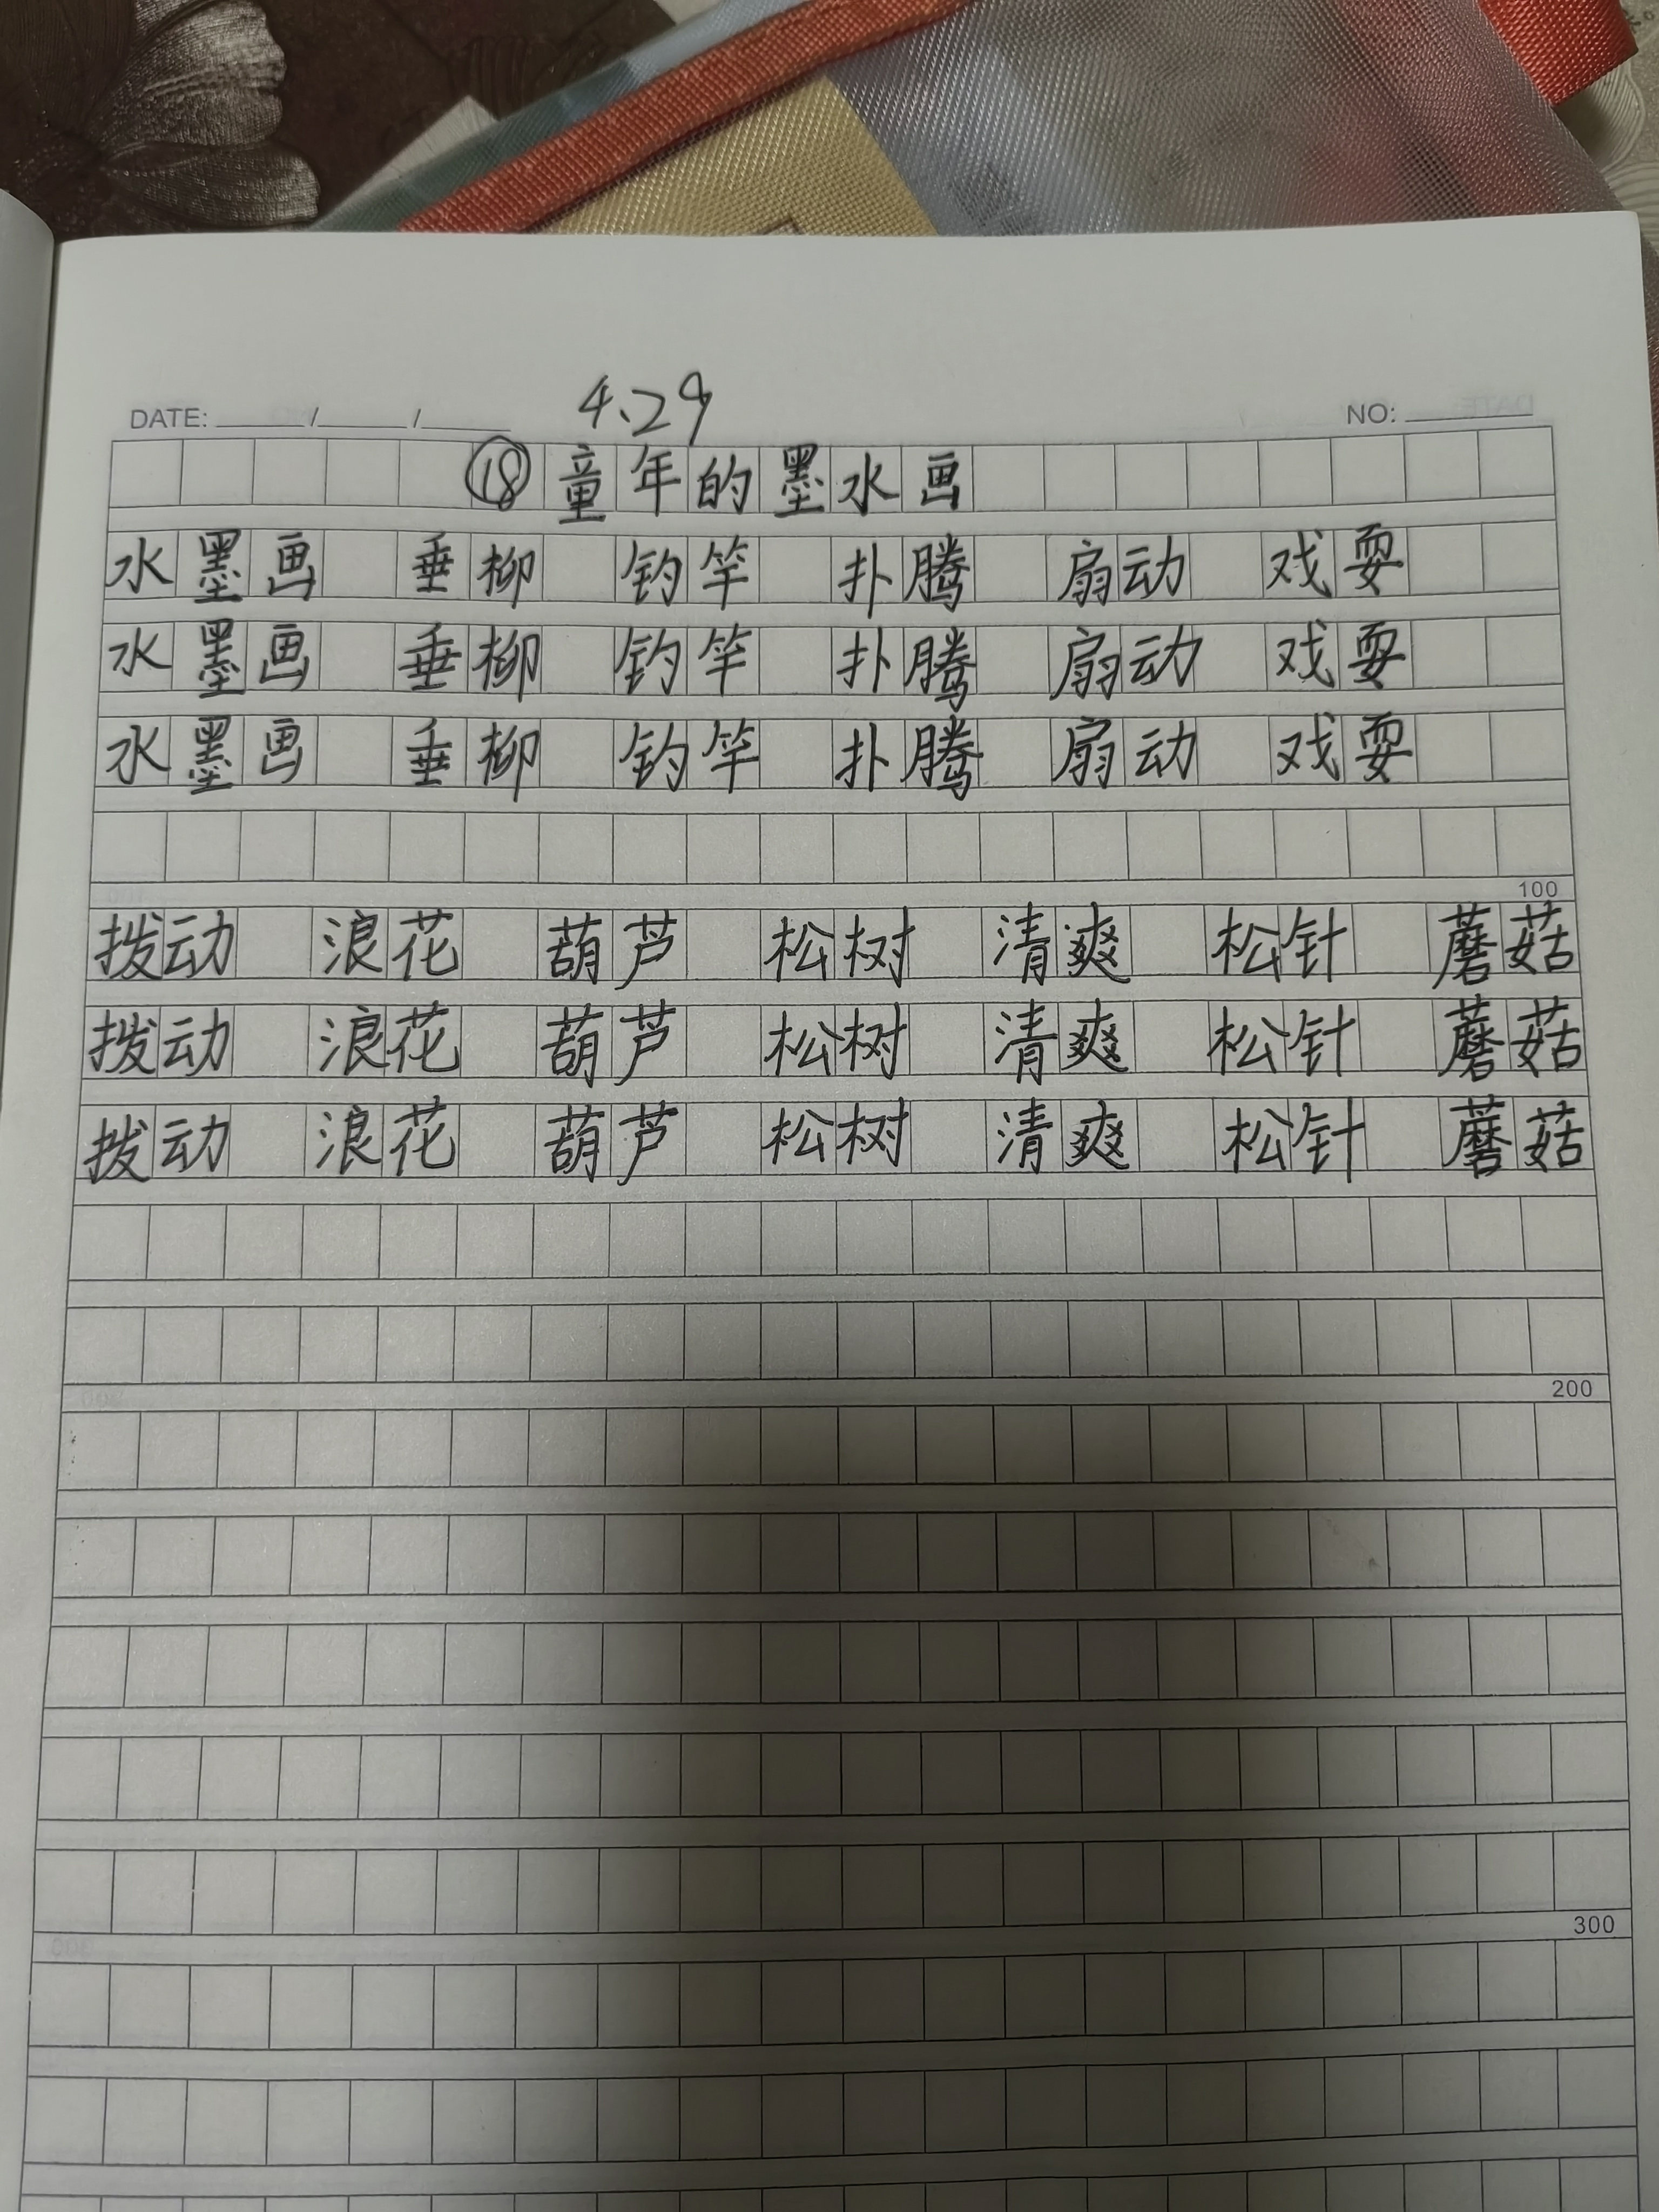 4.29
DATE: / / NO:
⑱童年的墨水画
水墨画 垂柳 钓竿 扑腾 扇动 戏耍
水墨画 垂柳 钓竿 扑腾 扇动 戏耍
水墨画 垂柳 钓竿 扑腾 扇动 戏耍
100
拨动 浪花 葫芦 松树 清爽 松针 蘑菇
拨动 浪花 葫芦 松树 清爽 松针 蘑菇
拨动 浪花 葫芦 松树 清爽 松针 蘑菇
200
300